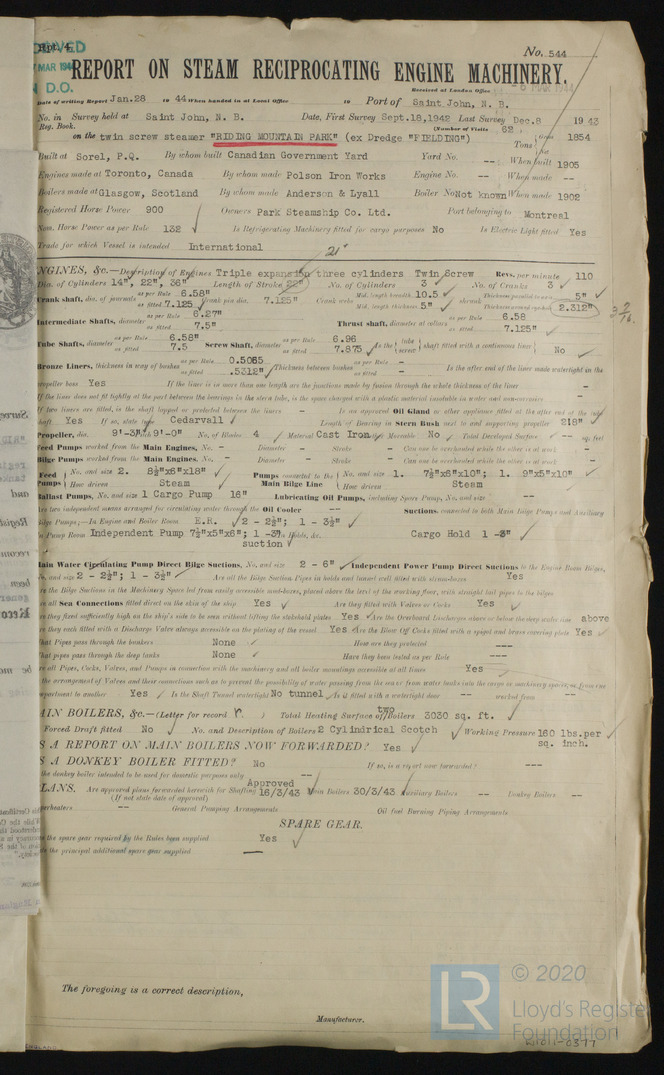 Rpt. 4.
No. 544
REPORT ON STEAM RECIPROCATING ENGINE MACHINERY.
Received at London Office
MAR 1944
D.O.
Date of writing Report Jan.28 to 44 When handed in at Local Office to Port of Saint John, N. B.
No. in Survey held at Saint John, N. B. Date, First Survey Sept.18,1942 Last Survey Dec.8 1943
Reg. Book. (Number of Visits 62
on the twin screw steamer "RIDING MOUNTAIN PARK" (ex Dredge "FIELDING") Tons 1854
Built at Sorel, P.Q. By whom built Canadian Government Yard Yard No. -- When built 1905
Engines made at Toronto, Canada By whom made Polson Iron Works Engine No. -- When made --
Boilers made at Glasgow, Scotland By whom made Anderson & Lyall Boiler No Not known When made 1902
Registered Horse Power 900 Owners Park Steamship Co. Ltd. Port belonging to Montreal
Nom. Horse Power as per Rule 132 Is Refrigerating Machinery fitted for cargo purposes No Is Electric Light fitted Yes
Trade for which Vessel is intended International
21"
ENGINES, &c.—Description of Engines Triple expansion three cylinders Twin Screw Revs. per minute 110
Dia. of Cylinders 14", 22", 36" Length of Stroke 22" No. of Cylinders 3 No. of Cranks 3
Crank shaft, dia. of journals as per Rule 6.58" as fitted 7.125 Crank pin dia. 7.125" Crank webs Mid. length breadth 10.5 Mid. length thickness 5" shrunk 5" 2.312"
Intermediate Shafts, diameter as per Rule 6.27" as fitted 7.5" Thrust shaft, diameter at collars as per Rule 6.58 as fitted 7.125"
Tube Shafts, diameter as per Rule 6.58" as fitted 7.5 Screw Shaft, diameter as per Rule 6.96 as fitted 7.875 Is the tube screw shaft fitted with a continuous liner No
Bronze Liners, thickness in way of bushes as per Rule 0.5065 as fitted .5312" Thickness between bushes as per Rule - as fitted - Is the after end of the liner made watertight in the
propeller boss Yes If the liner is in more than one length are the junctions made by fusion through the whole thickness of the liner -
If the liner does not fit tightly at the part between the bearings in the stern tube, is the space charged with a plastic material insoluble in water and non-corrosive -
If two liners are fitted, is the shaft lapped or protected between the liners - Is an approved Oil Gland or other appliance fitted at the after end of the tube
shaft Yes If so, state type Cedarvall Length of Bearing in Stern Bush next to and supporting propeller 218"
Propeller, dia. 9'-3" Pitch 9'-0" No. of Blades 4 Material Cast Iron Moveable No Total Developed Surface -- sq. feet
Feed Pumps worked from the Main Engines, No. - Diameter - Stroke - Can one be overhauled while the other is at work -
Bilge Pumps worked from the Main Engines, No. - Diameter - Stroke - Can one be overhauled while the other is at work -
Feed Pumps No. and size 2. 8½"x6"x18" How driven Steam Pumps connected to the Main Bilge Line No. and size 1. 7½"x6"x10"; 1. 9"x5"x10" How driven Steam
Ballast Pumps, No. and size 1 Cargo Pump 16" Lubricating Oil Pumps, including Spare Pump, No. and size -
Are two independent means arranged for circulating water through the Oil Cooler -- Suctions, connected to both Main Bilge Pumps and Auxiliary
Bilge Pumps;—In Engine and Boiler Room E.R. 2 - 2½"; 1 - 3½"
In Pump Room Independent Pump 7½"x5"x6"; 1 -3" In Holds, &c. Cargo Hold 1 -3"
suction
Main Water Circulating Pump Direct Bilge Suctions, No. and size 2 - 6" Independent Power Pump Direct Suctions to the Engine Room Bilges,
No. and size 2 - 2½"; 1 - 3½" Are all the Bilge Suction Pipes in holds and tunnel well fitted with strum-boxes Yes
Are the Bilge Suctions in the Machinery Space led from easily accessible mud-boxes, placed above the level of the working floor, with straight tail pipes to the bilges
Are all Sea Connections fitted direct on the skin of the ship Yes Are they fitted with Valves or Cocks Yes
Are they fixed sufficiently high on the ship's side to be seen without lifting the stokehold plates Yes Are the Overboard Discharges above or below the deep water line above
Are they each fitted with a Discharge Valve always accessible on the plating of the vessel Yes Are the Blow Off Cocks fitted with a spigot and brass covering plate Yes
What Pipes pass through the bunkers None How are they protected ----
What pipes pass through the deep tanks None Have they been tested as per Rule ----
Are all Pipes, Cocks, Valves, and Pumps in connection with the machinery and all boiler mountings accessible at all times Yes
Is the arrangement of Valves and their connections such as to prevent the possibility of water passing from the sea or from water tanks into the cargo or machinery spaces, or from one
compartment to another Yes Is the Shaft Tunnel watertight No tunnel Is it fitted with a watertight door -- worked from --
MAIN BOILERS, &c.—(Letter for record r. ) Total Heating Surface of two Boilers 3030 sq. ft.
Forced Draft fitted No No. and Description of Boilers 2 Cylindrical Scotch Working Pressure 160 lbs.per
sq. inch.
IS A REPORT ON MAIN BOILERS NOW FORWARDED? Yes
IS A DONKEY BOILER FITTED? No If so, is a report now forwarded? ---
Is the donkey boiler intended to be used for domestic purposes only --
PLANS. Are approved plans forwarded herewith for Shafting Approved 16/3/43 Main Boilers 30/3/43 Auxiliary Boilers -- Donkey Boilers --
(If not state date of approval)
Superheaters -- General Pumping Arrangements Oil fuel Burning Piping Arrangements
SPARE GEAR.
Is the spare gear required by the Rules been supplied Yes
State the principal additional spare gear supplied
The foregoing is a correct description,
Manufacturer.
LR © 2020
Lloyd's Register
Foundation
W1011-0377